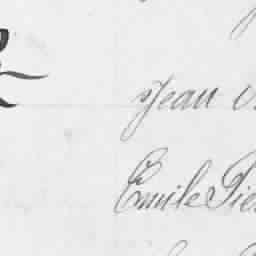 Jean
Emile Pie